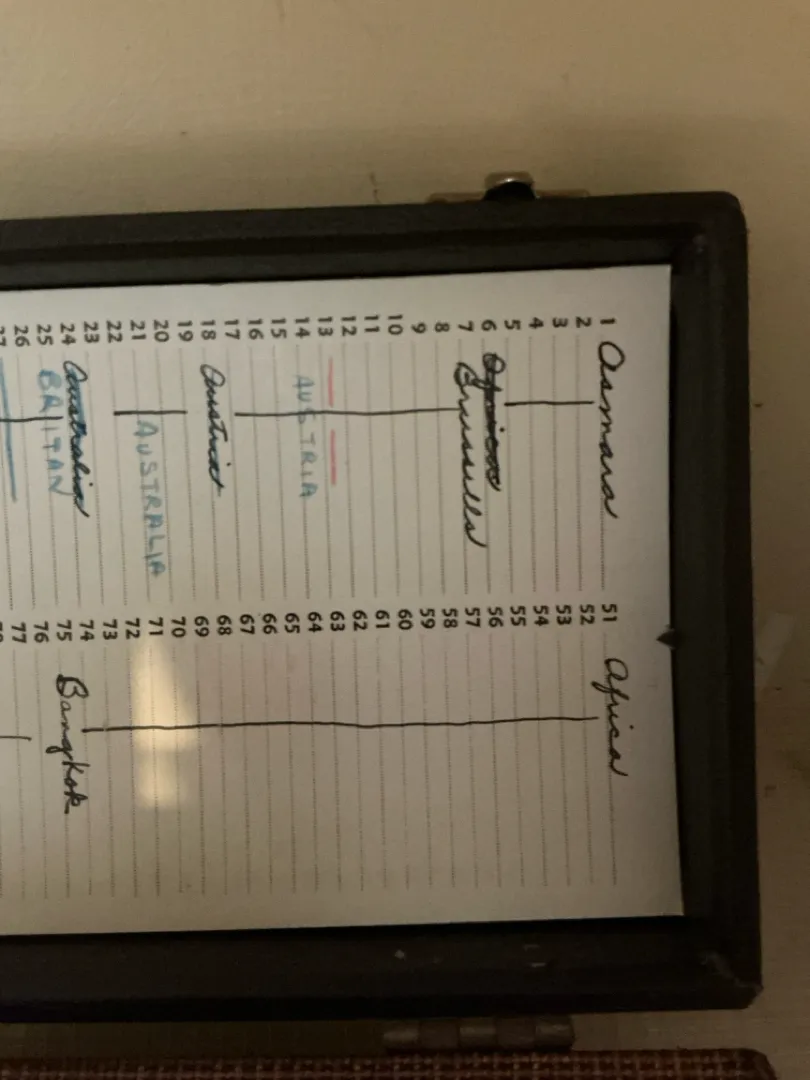 1 Asmara
2
3
4
5
6 Africa
7 Brussells
8
9
10
11
12
13
14 AUSTRIA
15
16
17
18 Austria
19
20
21 AUSTRALIA
22
23
24 Australia
25 BRIITAN
26
27
51 Africa
52
53
54
55
56
57
58
59
60
61
62
63
64
65
66
67
68
69
70
71
72
73
74
75 Bangkok
76
77